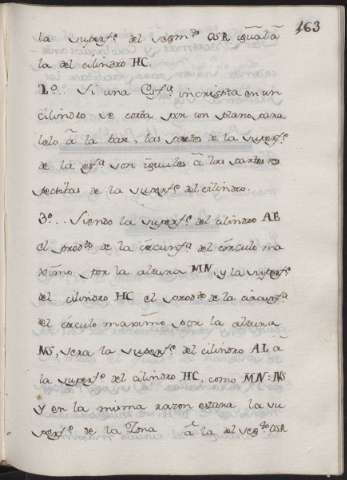 163
la superf.e del segm.to QSR igual â
la del cilindro HC.
2.o .. Si una Esf.a inscripta en un
cilindro se corta por un plano para
lelo â la base, las partes de la superf.e
de la esf.a son iguales â las partes re
spectivas de la superf.e del cilindro.
3.o .. Siendo la superf.e del cilindro AE
el prod.to de la circunf.a del círculo ma
ximo, por la altura MN, y la superf.e
del cilindro HC el prod.to de la circunf.a
del círculo maximo por la altura
NS, sera la superf.e del cilindro AL â
la superf.e del cilindro HC, como MN:NS
y en la misma razon estara la su
perf.e de la Zona â la del seg.to QSR